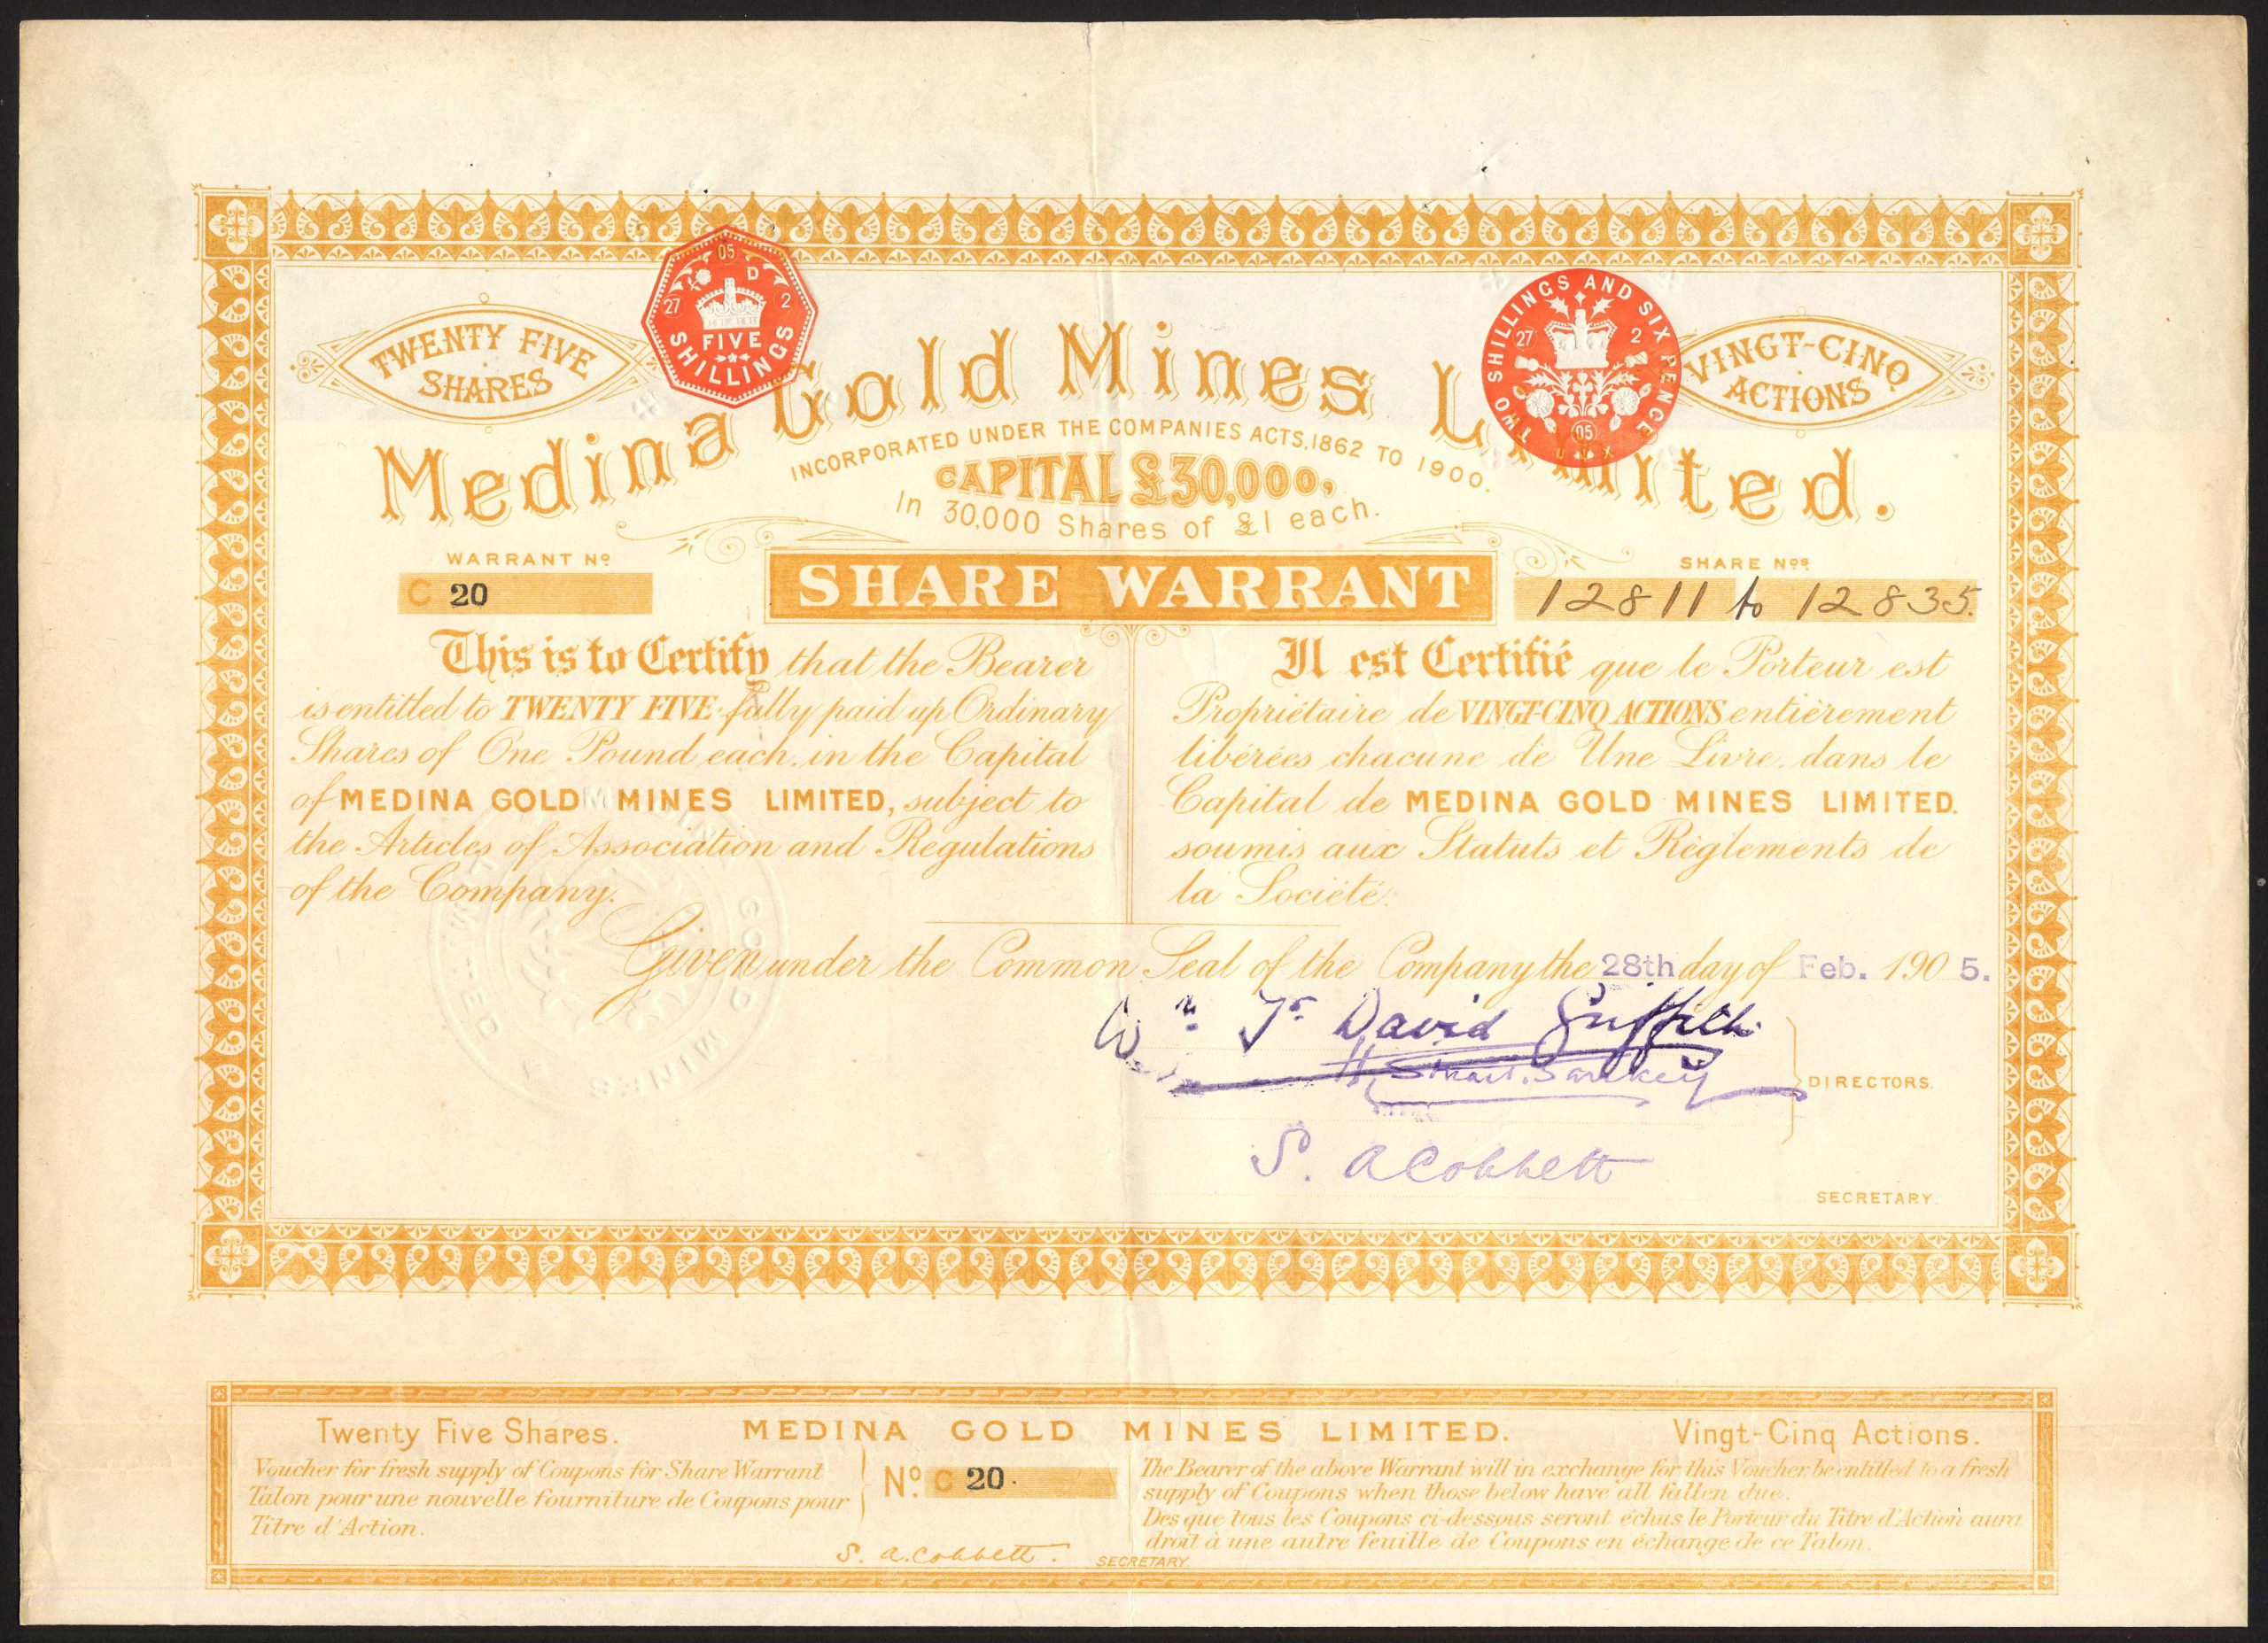 TWENTY FIVE
SHARES
05
D
27
2
FIVE
SHILLINGS
TWO SHILLINGS AND SIX PENCE
27
2
05
VINGT-CINQ
ACTIONS
Medina Gold Mines Limited.
INCORPORATED UNDER THE COMPANIES ACTS, 1862 TO 1900.
CAPITAL £30,000,
In 30,000 Shares of £1 each.
WARRANT No
C 20
SHARE WARRANT
SHARE Nos
12811 to 12835.
This is to Certify that the Bearer
is entitled to TWENTY FIVE fully paid up Ordinary
Shares of One Pound each, in the Capital
of MEDINA GOLD MINES LIMITED, subject to
the Articles of Association and Regulations
of the Company.
Il est Certifié que le Porteur est
Propriétaire de VINGT-CINQ ACTIONS entièrement
libérées chacune de Une Livre, dans le
Capital de MEDINA GOLD MINES LIMITED.
soumis aux Statuts et Règlements de
la Société.
MEDINA GOLD MINES LIMITED
Given under the Common Seal of the Company the 28th day of Feb. 1905.
Wm Jr David Griffith
H. Stuart. Sankey
DIRECTORS.
S. A Cobbett
SECRETARY.
Twenty Five Shares.
MEDINA GOLD MINES LIMITED.
Vingt-Cinq Actions.
Voucher for fresh supply of Coupons for Share Warrant
Talon pour une nouvelle fourniture de Coupons pour
Titre d'Action.
No C 20.
The Bearer of the above Warrant will in exchange for this Voucher be entitled to a fresh
supply of Coupons when those below have all fallen due.
Des que tous les Coupons ci-dessous seront échus le Porteur du Titre d'Action aura
droit à une autre feuille de Coupons en échange de ce Talon.
S. A. Cobbett.
SECRETARY.